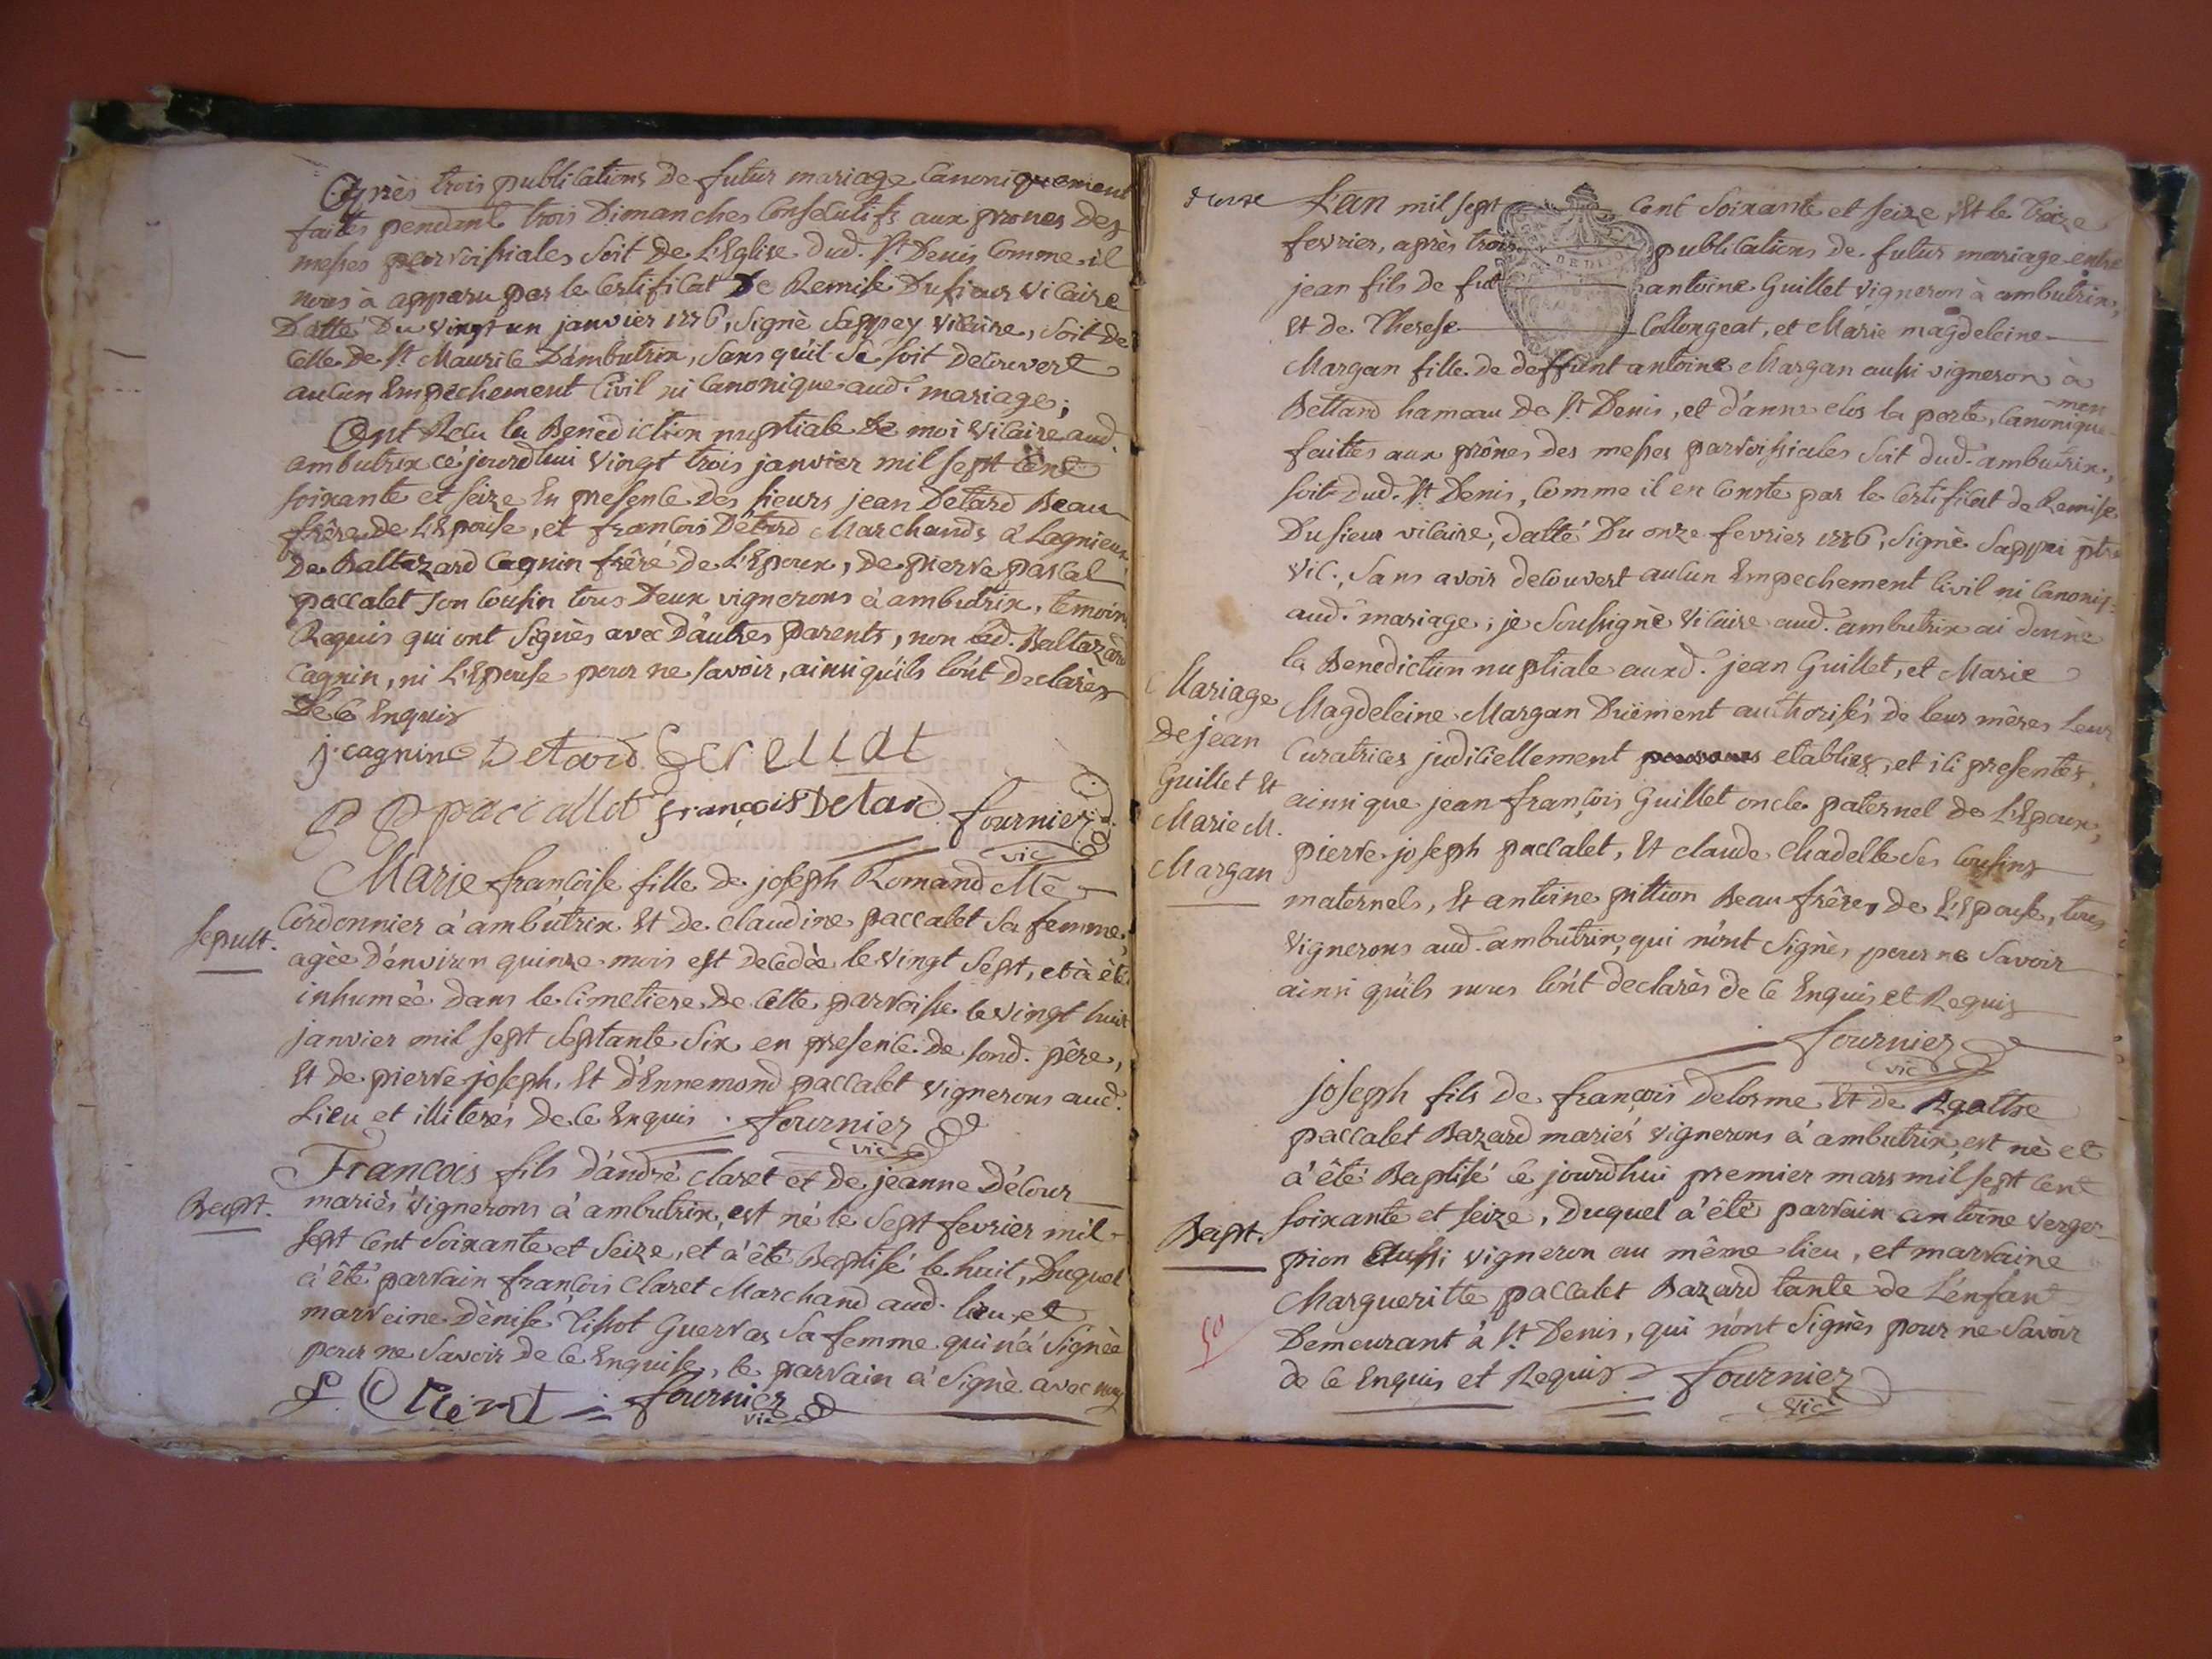 Après trois publications de futur mariage Canoniquement
faites pendant trois Dimanches Consecutifs aux prones des
messes parroissiales soit de L'Eglise dud. St Denis Comme il
nous à apparu par le Certificat De Remise Du sieur Vicaire
Datté Du vingt un janvier 1776, signé Sappey Vicaire, soit de
Celle de St Maurice D'ambutrix, sans qu'il se soit decouvert
aucun Empechement Civil ni Canonique aud. mariage;
Ont Recu la Benediction nuptiale De moi Vicaire aud.
ambutrix ce jourd'hui vingt trois janvier mil sept cent
soixante et seize En presence des sieurs jean Detard Beau
frère de L'Epouse, et francois Détard Marchands à Lagnieux,
De Baltazard Cagnin frère de L'Epoux, De pierre pascal
paccalet son Cousin tous Deux vignerons à ambutrix, temoins
Requis qui ont signés avec D'autres parents, non led. Baltazard
Cagnin, ni L'Epouse pour ne savoir, ainsi qu'ils l'ont declarés
De Ce Enquis
j. cagnine Detard
P P paccallet françois Detard fournier
vic
Marie francoise fille de joseph Romand Me
Sepult. Cordonnier à ambutrix Et de Claudine paccalet sa femme,
agée d'environ quinze mois est decedée le vingt sept, et à été
inhumée dans le Cimetiere de Cette parroisse le vingt huit
janvier mil sept septante six en presence de sond. père,
Et de pierre joseph, Et d'Ennemond paccalet vignerons aud.
Lieu et illiterés de Ce Enquis. fournier
vic
François fils d'andré claret et de jeanne Délour
Bapt. mariés vignerons à ambutrix, est né le sept fevrier mil
sept Cent Soixante et Seize, et à été Baptisé le huit, Duquel
à été parrain francois Claret Marchand aud. lieu, et
marreine Dénise Tissot Guerras sa femme qui n'à signée
pour ne savoir de Ce Enquise, le parrain à signé avec nous
f. Claret fournier
vic
L'an mil sept Cent Soixante et seize, Et le treize
fevrier, après trois publications de futur mariage entre
jean fils de fut antoine Guillet vigneron à ambutrix,
Et de Therese Collongeat, et Marie magdeleine
Margan fille de deffunt antoine Margan aussi vigneron à
Bettand hameau de St Denis, et d'anne clos la porte, Canonique-
men
faittes aux prônes des messes parroissiales soit dud. ambutrix,
soit dud. St Denis, Comme il en Conste par le Certificat de Remise
Du sieur vicaire, datté Du onze fevrier 1776, signé Sappai ptre
vic., Sans avoir decouvert aucun Empechement Civil ni Canoniq.
aud. mariage; je Soussigné Vicaire aud. ambutrix ai donné
la Benediction nuptiale auxd. jean Guillet, et Marie
Mariage Magdeleine Margan Düement authorisés de leurs mères Leur
De jean Curatrices judiciellement etablies, et ici presentes,
Guillet Et ainsi que jean françois Guillet oncle paternel de L'Epoux,
Marie M. pierre joseph paccalet, Et claude Chadelle ses Cousins
Margan maternels, Et antoine pittion Beau frère, de L'Epouse, tous
vignerons aud. ambutrix, qui n'ont signés, pour ne Savoir
ainsi qu'ils nous l'ont declarés de Ce Enquis et Requis
fournier
vic
joseph fils de françois Delorme Et de Agathe
paccalet Bazard mariés vignerons à ambutrix, est né et
à été Baptisé Ce jourd'hui premier mars mil sept Cent
Bapt. soixante et seize, Duquel à été parrain antoine Verger-
pion Aussi vigneron au même lieu, et marraine
Margueritte paccalet Bazard tante de L'enfant
Demeurant à St Denis, qui n'ont signés pour ne Savoir
de Ce Enquis et Requis fournier
vic